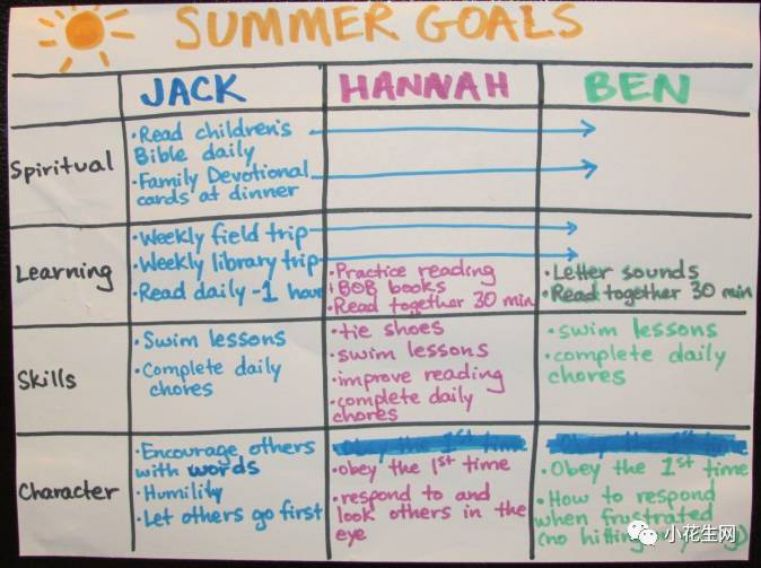 SUMMER GOALS
JACK
HANNAH
BEN
Spiritual
·Read children's
Bible daily
·Family Devotional
cards at dinner
Learning
·Weekly field trip
·Weekly library trip
·Read daily -1 hour
·Practice reading
BOB books
·Read together 30 min
·Letter sounds
·Read together 30 min
Skills
·Swim lessons
·Complete daily
chores
·tie shoes
·swim lessons
·improve reading
·complete daily
chores
·swim lessons
·complete daily
chores
Character
·Encourage others
with words
·Humility
·Let others go first
·obey the 1st time
·respond to and
look others in the
eye
·Obey the 1st time
·How to respond
when frustrated
(no hitting
小花生网